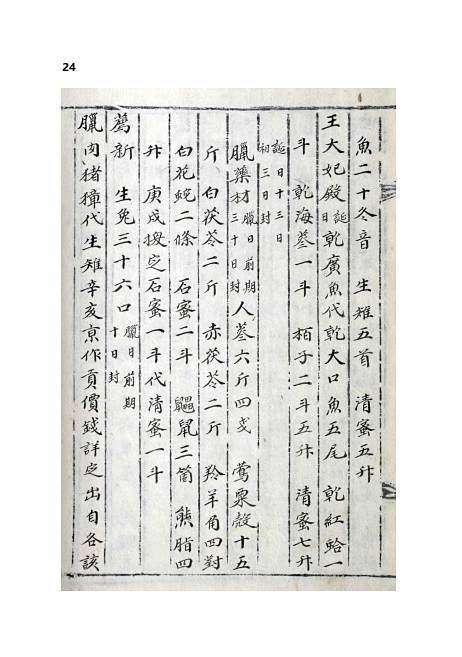 24
魚二十冬音 生雉五首 清蜜五升
王大妃殿誕日乾廣魚代乾大口魚五尾 乾紅蛤一
斗 乾海蔘一斗 栢子二斗五升 清蜜七升
誕日十三日
初三日封
臘藥材臘日前期三十日封人蔘六斤四戔 鶯粟殼十五
斤 白茯苓二斤 赤茯苓二斤 羚羊角四對
白花蛇二條 石蜜二斗 鼯鼠三箇 熊脂四
升 庚戌授定石蜜一斗代清蜜一斗
薦新 生兎三十六口臘日前期十日封
臘肉猪獐代生雉辛亥京作貢價錢詳定出自各該